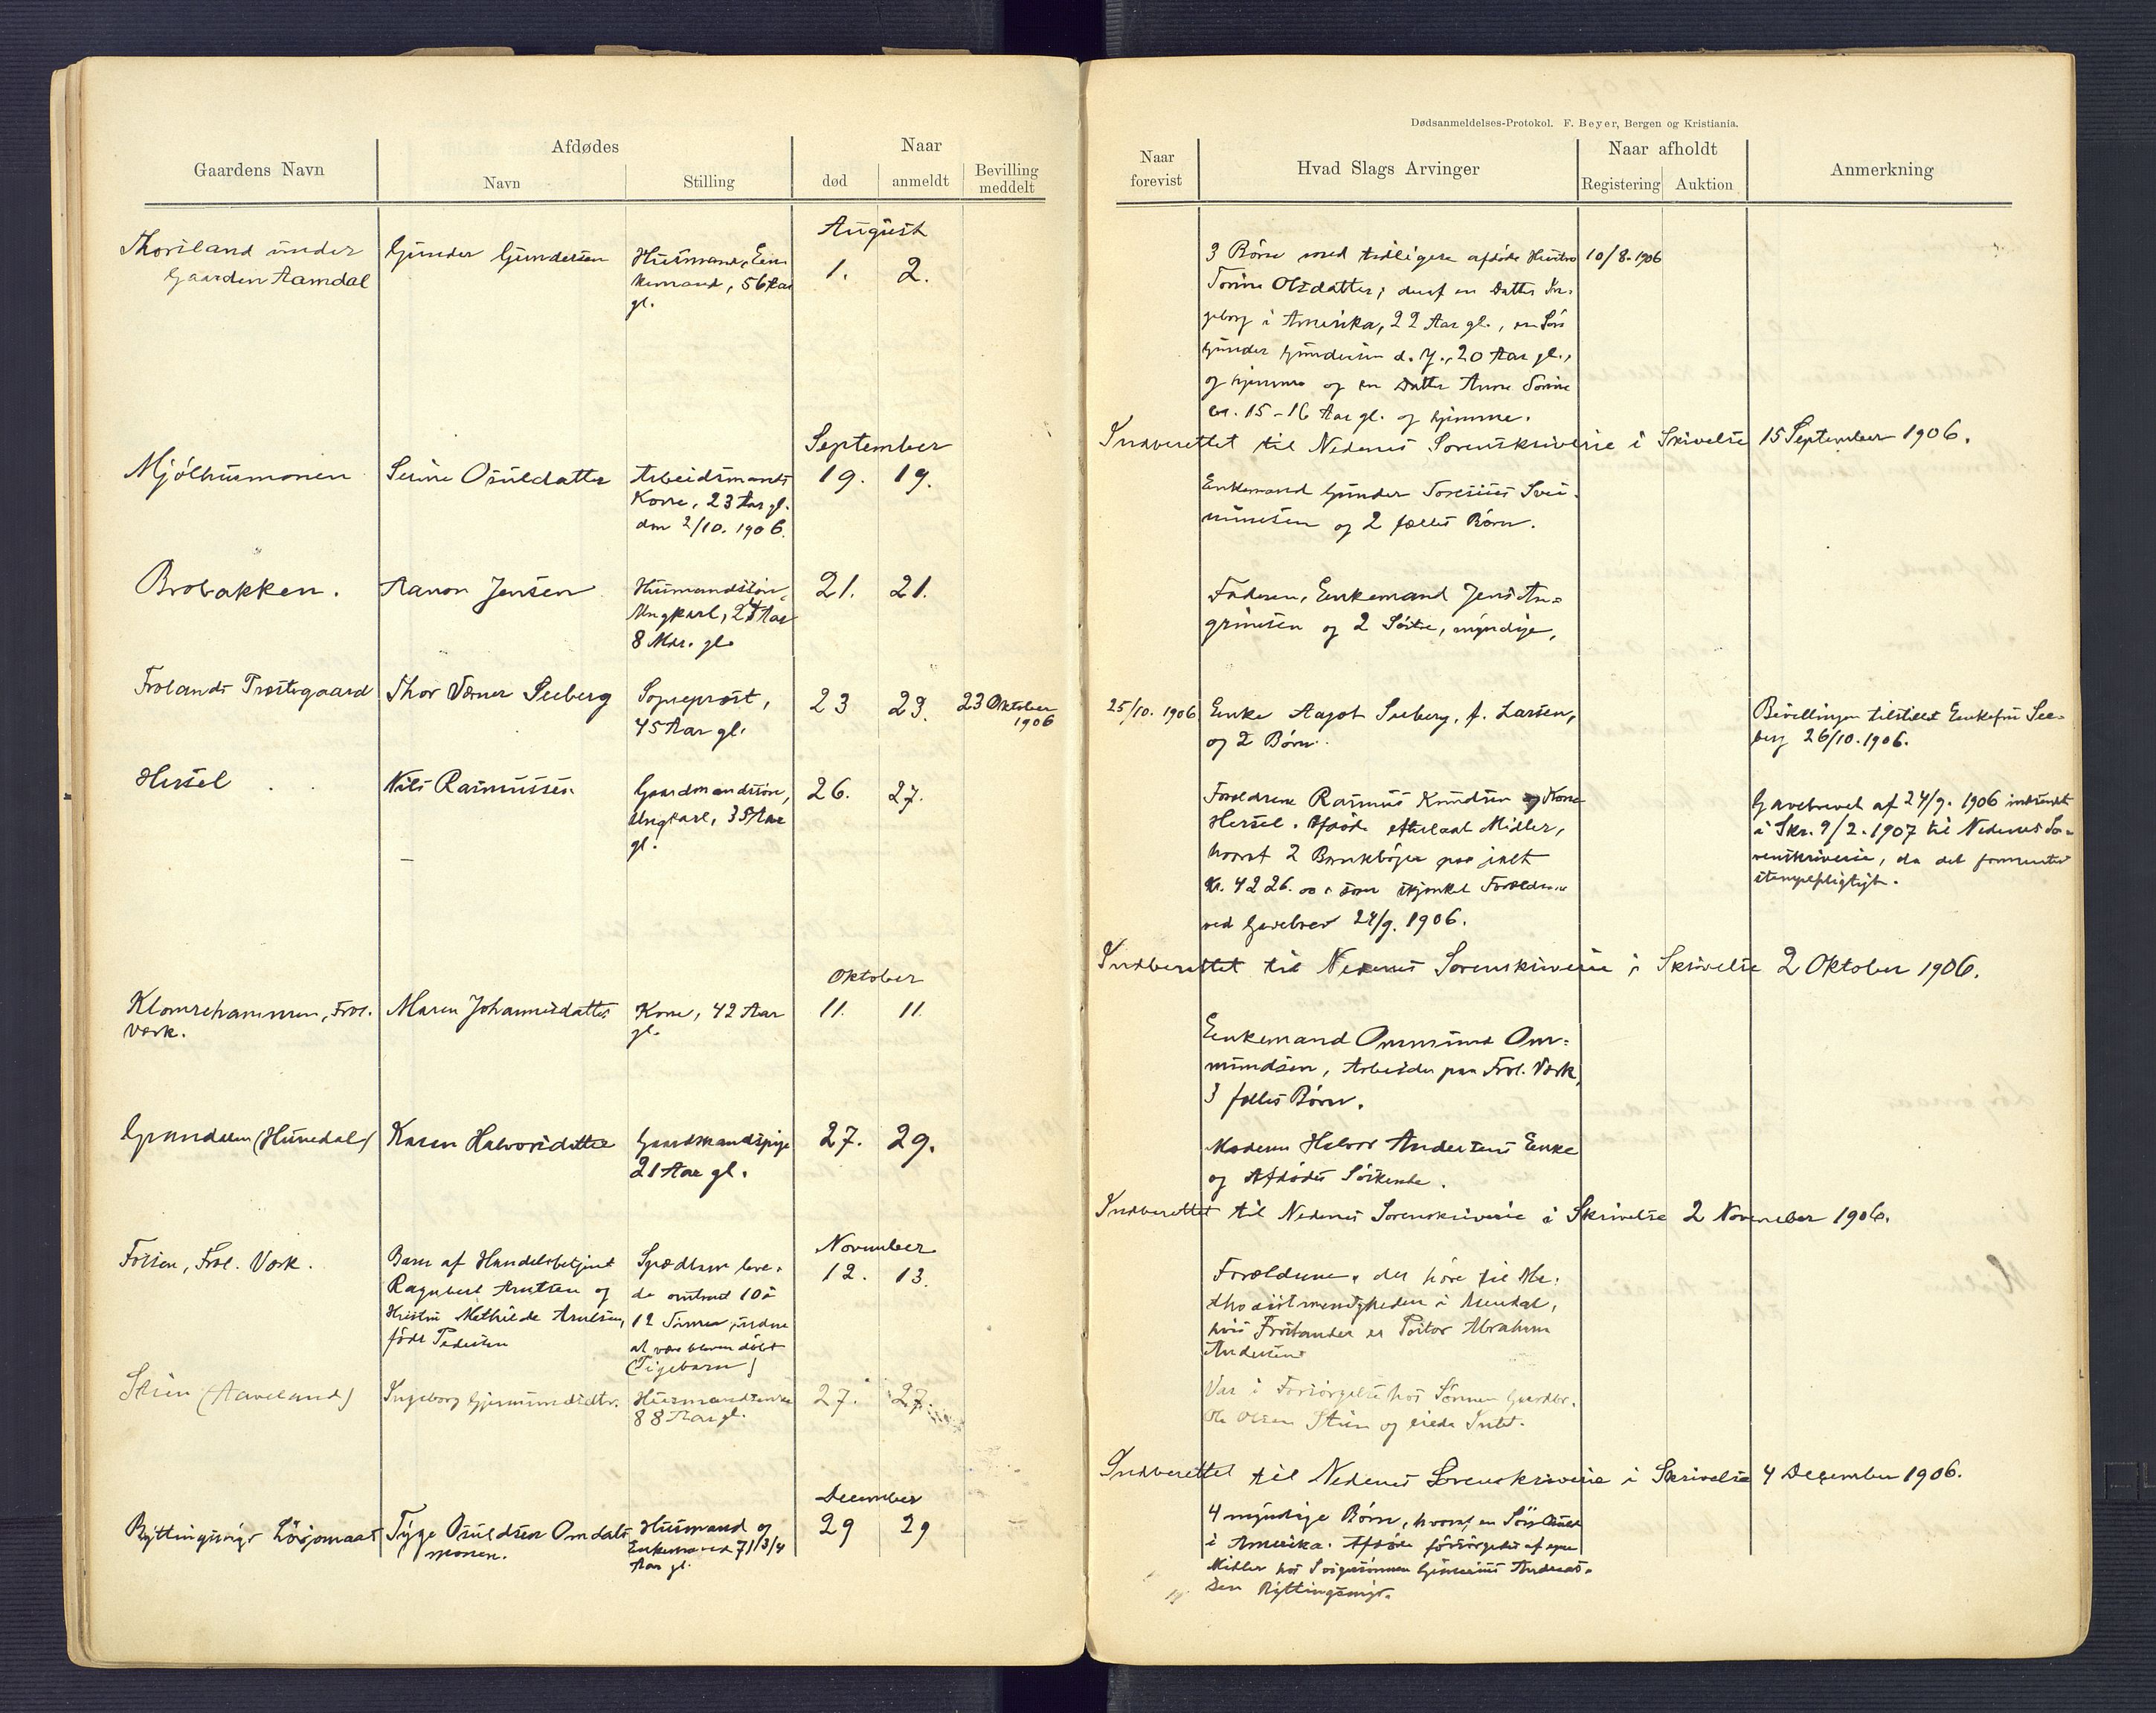 Dødsanmeldelses-Protokol. F. Beyer, Bergen og Kristiania.
Gaardens Navn
Afdødes
Navn
Stilling
Naar
død
anmeldt
Bevilling
meddelt
Naar
forevist
Hvad Slags Arvinger
Naar afholdt
Registering
Auktion
Anmerkning
August
Thorsland under
Gaarden Aamdal
Gunder Gundersen
Husmand, En
kemand, 56 Aar
gl.
1.
2.
3 Børn med tidligere afdøde Hustru
Torine Olsdatter; deraf en Datter In-
geborg i Amerika, 22 Aar gl., en Søn
Gunder Gundersen d. y., 20 Aar gl.,
og hjemme og en Datter Anne Torine
er. 15-16 Aar gl. og hjemme.
10/8-1906
Indberettet til Nedenes Sorenskriverie i Skrivelse 15 September 1906.
September
Mjölhusmonen
Serine Osuldatter
Arbeidsmands
Kone, 23 Aar gl.
den 2/10. 1906.
19.
19.
Enkemand Gunder
og 2 fælles Børn.
Brobakken.
Aanon Jensen
Husmandssøn,
Ungkarl, 24 Aar
8 Mdr. gl.
21.
21.
Faderen, Enkemand Jens An-
grimsen og 2 Søstre, myndige,
Frolands Præstegaard
Thor Værner Seeberg
Sogneprest,
45 Aar gl.
23
23.
23 Oktober
1906
25/10. 1906
Enke Aagot Seeberg, f. Larsen,
og 2 Børn.
Bevillingen tilstillet Enkefru See-
berg 26/10. 1906.
Hersel
Nils Rasmussen
Gaardmandssøn,
Ungkarl, 35 Aar
gl.
26.
27.
Forældrene Rasmus Knudsen og Kone
Hersel. Afdøde efterlod Midler,
hvoraf 2 Bankbøger paa ialt
Kr. 4226.00 som skjænket Forældrene
ved Gavebrev 24/9. 1906.
Gavebrevet af 24/9. 1906 indsendt
i Skr. 9/2. 1907 til Nedenes So-
renskriverie, da det formentes
stempelpligtigt.
Indberettet til Nedenes Sorenskriverie i Skrivelse 2 Oktober 1906.
Oktober
Klomrehammen, Frol.
Værk.
Maren Johannesdatter
Kone, 42 Aar
gl.
11.
11.
Enkemand Ommund Om-
mundsen, Arbeider paa Frol. Værk,
3 fælles Børn.
Grundalen (Hunedal)
Karen Halvorsdatter
Gaardmandspige
21 Aar gl.
27.
29.
Moderen Halvor Andersens Enke
og Afdødes Søskende.
Indberettet til Nedenes Sorenskriverie i Skrivelse 2 November 1906.
November
Fossen, Frol. Værk.
Barn af Handelsbetjent
Ragnvald Arntsen og
Hustru Mathilde Arntsen,
født Pedersen
Spædbarn leve-
de omtrent 10 à
12 Timer, uden
at være bleven døbt
(Pigebarn)
12.
13.
Forældrene, der høre til Me-
thodistmenigheden i Arendal,
hvis Forstander er Pastor Abraham
Andersen
Stien (Aaveland)
Ingeborg Gjermundsdtr.
Husmandsenke
88 Aar gl.
27.
27.
Var i Forsørgelse hos Sønnen Gaardbr.
Ole Olsen Stien og eiede Intet.
Indberettet til Nedenes Sorenskriverie i Skrivelse 4 December 1906.
December
Ryttingsmyr Lövjomaas
Tygge Osuldsen Omdals
monen.
Husmand og
Enkemand 71 3/4
Aar gl.
29
29
4 myndige Børn, hvoraf en Søn Osuld
i Amerika. Afdøde forsørgedes af egne
Midler hos Svigersønnen Andreas-
sen Ryttingsmyr.